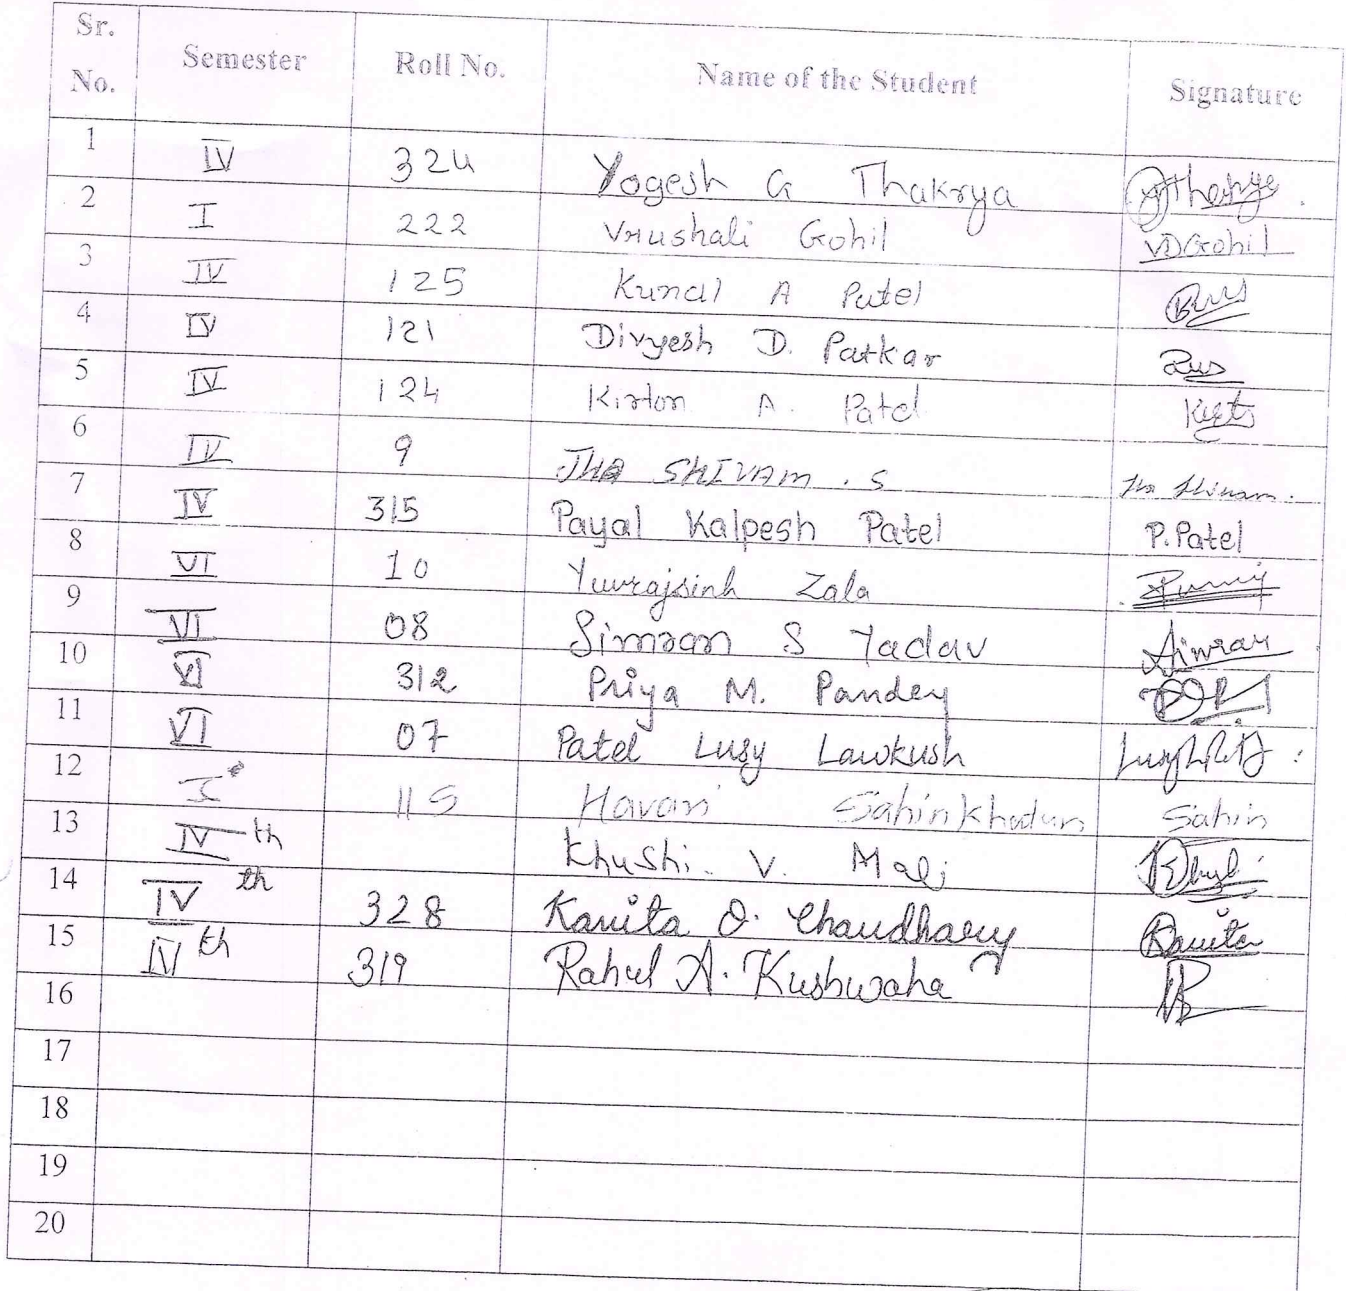 Sr. No. Semester Roll No. Name of the Student Signature
1 IV 324 Yogesh G Thakrya
2 I 222 Vrushali Gohil VDGohil
3 IV 125 Kunal A Patel
4 IV 121 Divyesh D. Patkar
5 IV 124 Kirton A. Patel
6 IV 9 JHA SHIVAM . S Jha Shivam.
7 IV 315 Payal Kalpesh Patel P.Patel
8 VI 10 Yuvrajsinh Zala
9 VI 08 Simran S Yadav Simran
10 VI 312 Priya M. Pandey
11 VI 07 Patel Lusy Lawkush
12 I 115 Havari Sahinkhatun Sahin
13 IV th Khushi. V. Mali
14 IV th 328 Kavita O. Chaudhary Kavita
15 IV th 319 Rahul A. Kushwaha
16
17
18
19
20